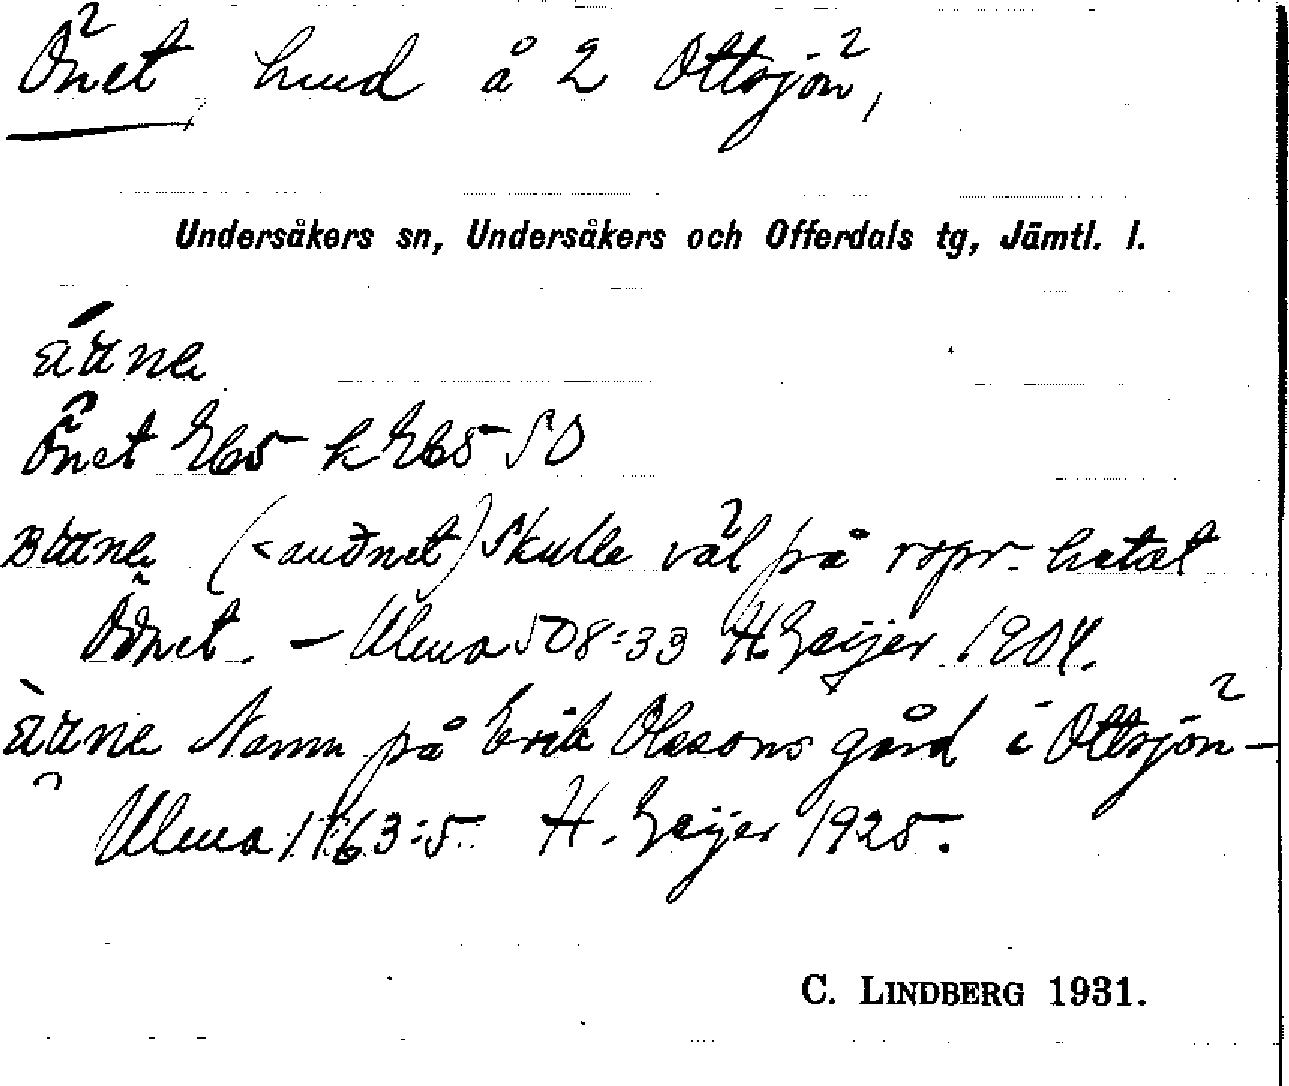 Önet hmd å 2 Ottsjön,
Undersåkers sn, Undersåkers och Offerdals tg, Jämtl. l.
Önet
(<auðnet) Skulle väl på ropr. hetat
Öðnet. – Ulma 508:33 H. Geijer 1904.
Namn på Erik Olssons gård i Ottsjön –
Ulma 1163:5. H. Geijer 1925.
C. LINDBERG 1931.